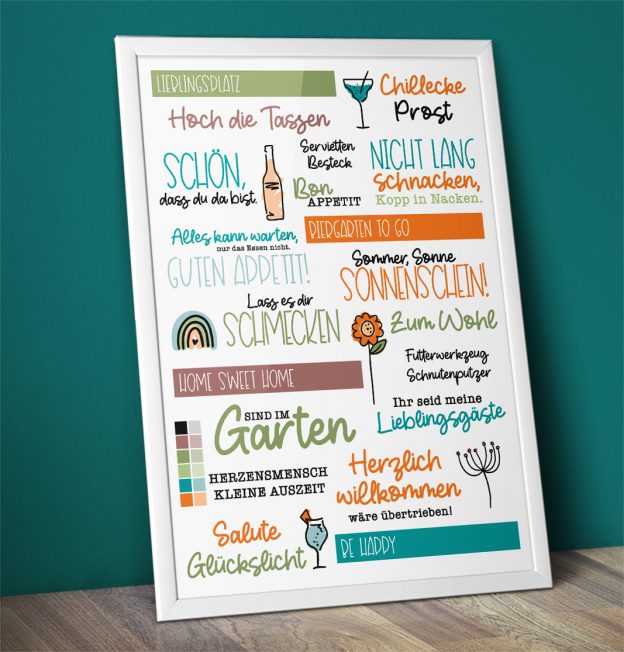 LIEBLINGSPLATZ
Chillecke
Prost
Hoch die Tassen
Servietten
Besteck
NICHT LANG
schnacken,
Kopp in Nacken.
SCHÖN,
dass du da bist.
Bon
APPETIT
BIERGARTEN TO GO
Alles kann warten,
nur das Essen nicht.
GUTEN APPETIT!
Sommer, Sonne
SONNENSCHEIN!
Lass es dir
SCHMECKEN
Zum Wohl
Futterwerkzeug
Schnutenputzer
HOME SWEET HOME
Ihr seid meine
Lieblingsgäste
SIND IM
Garten
HERZENSMENSCH
KLEINE AUSZEIT
Herzlich
willkommen
wäre übertrieben!
Salute
Glückslicht
BE HAPPY